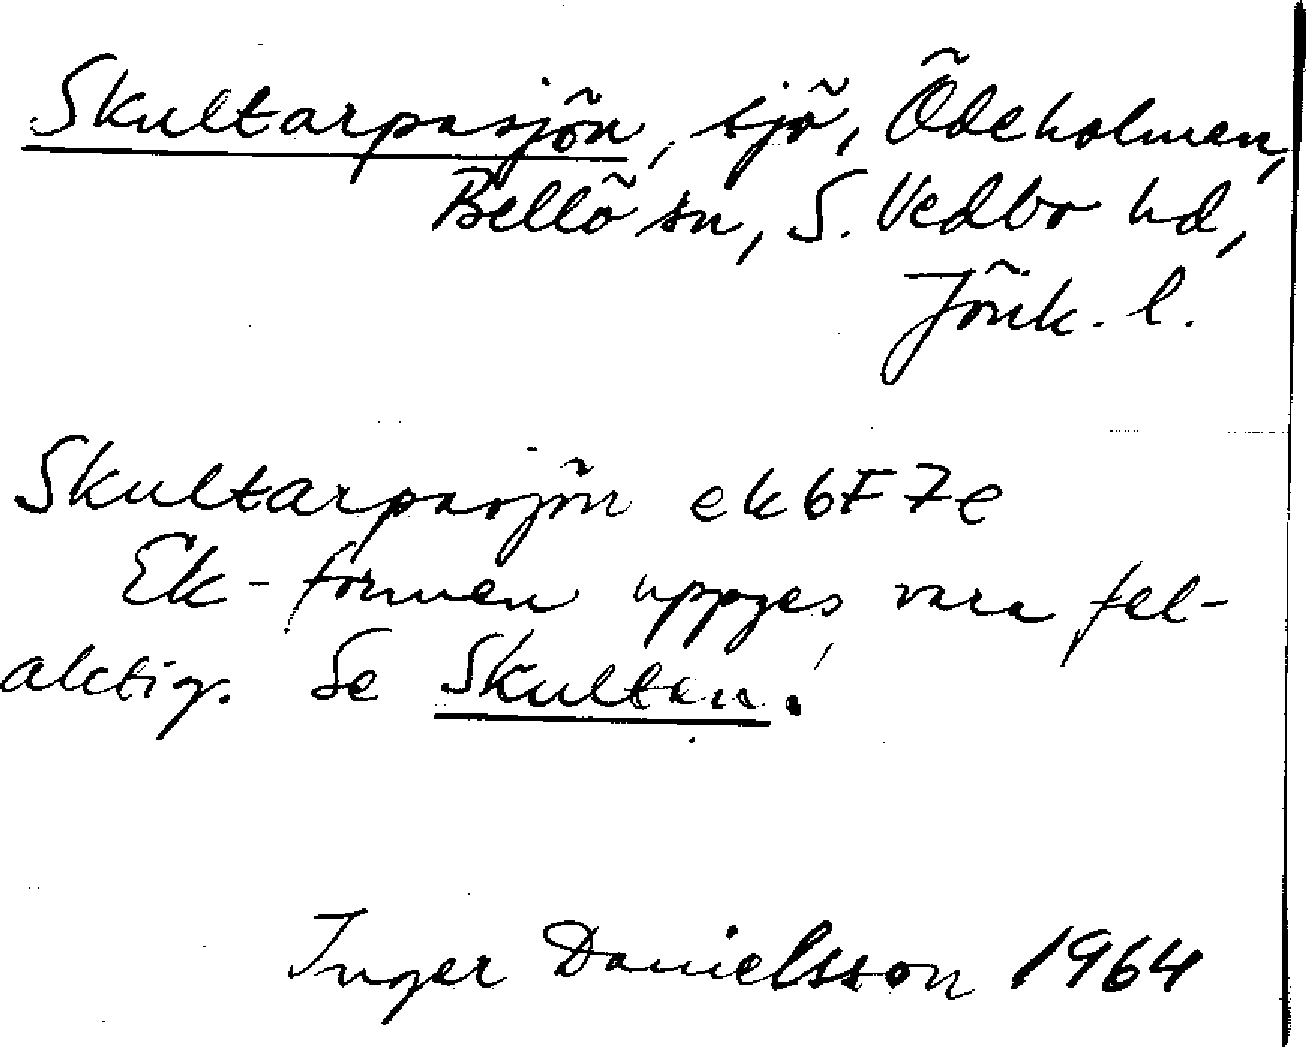 Skultarpasjön, sjö, Ödeholmen,
Bellö sn, S. Vedbo hd,
Jönk. l.
Skultarpasjön ek 6F7e
Ek-formen uppges vara fel-
aktig. Se Skultan!
Inger Danielsson 1964